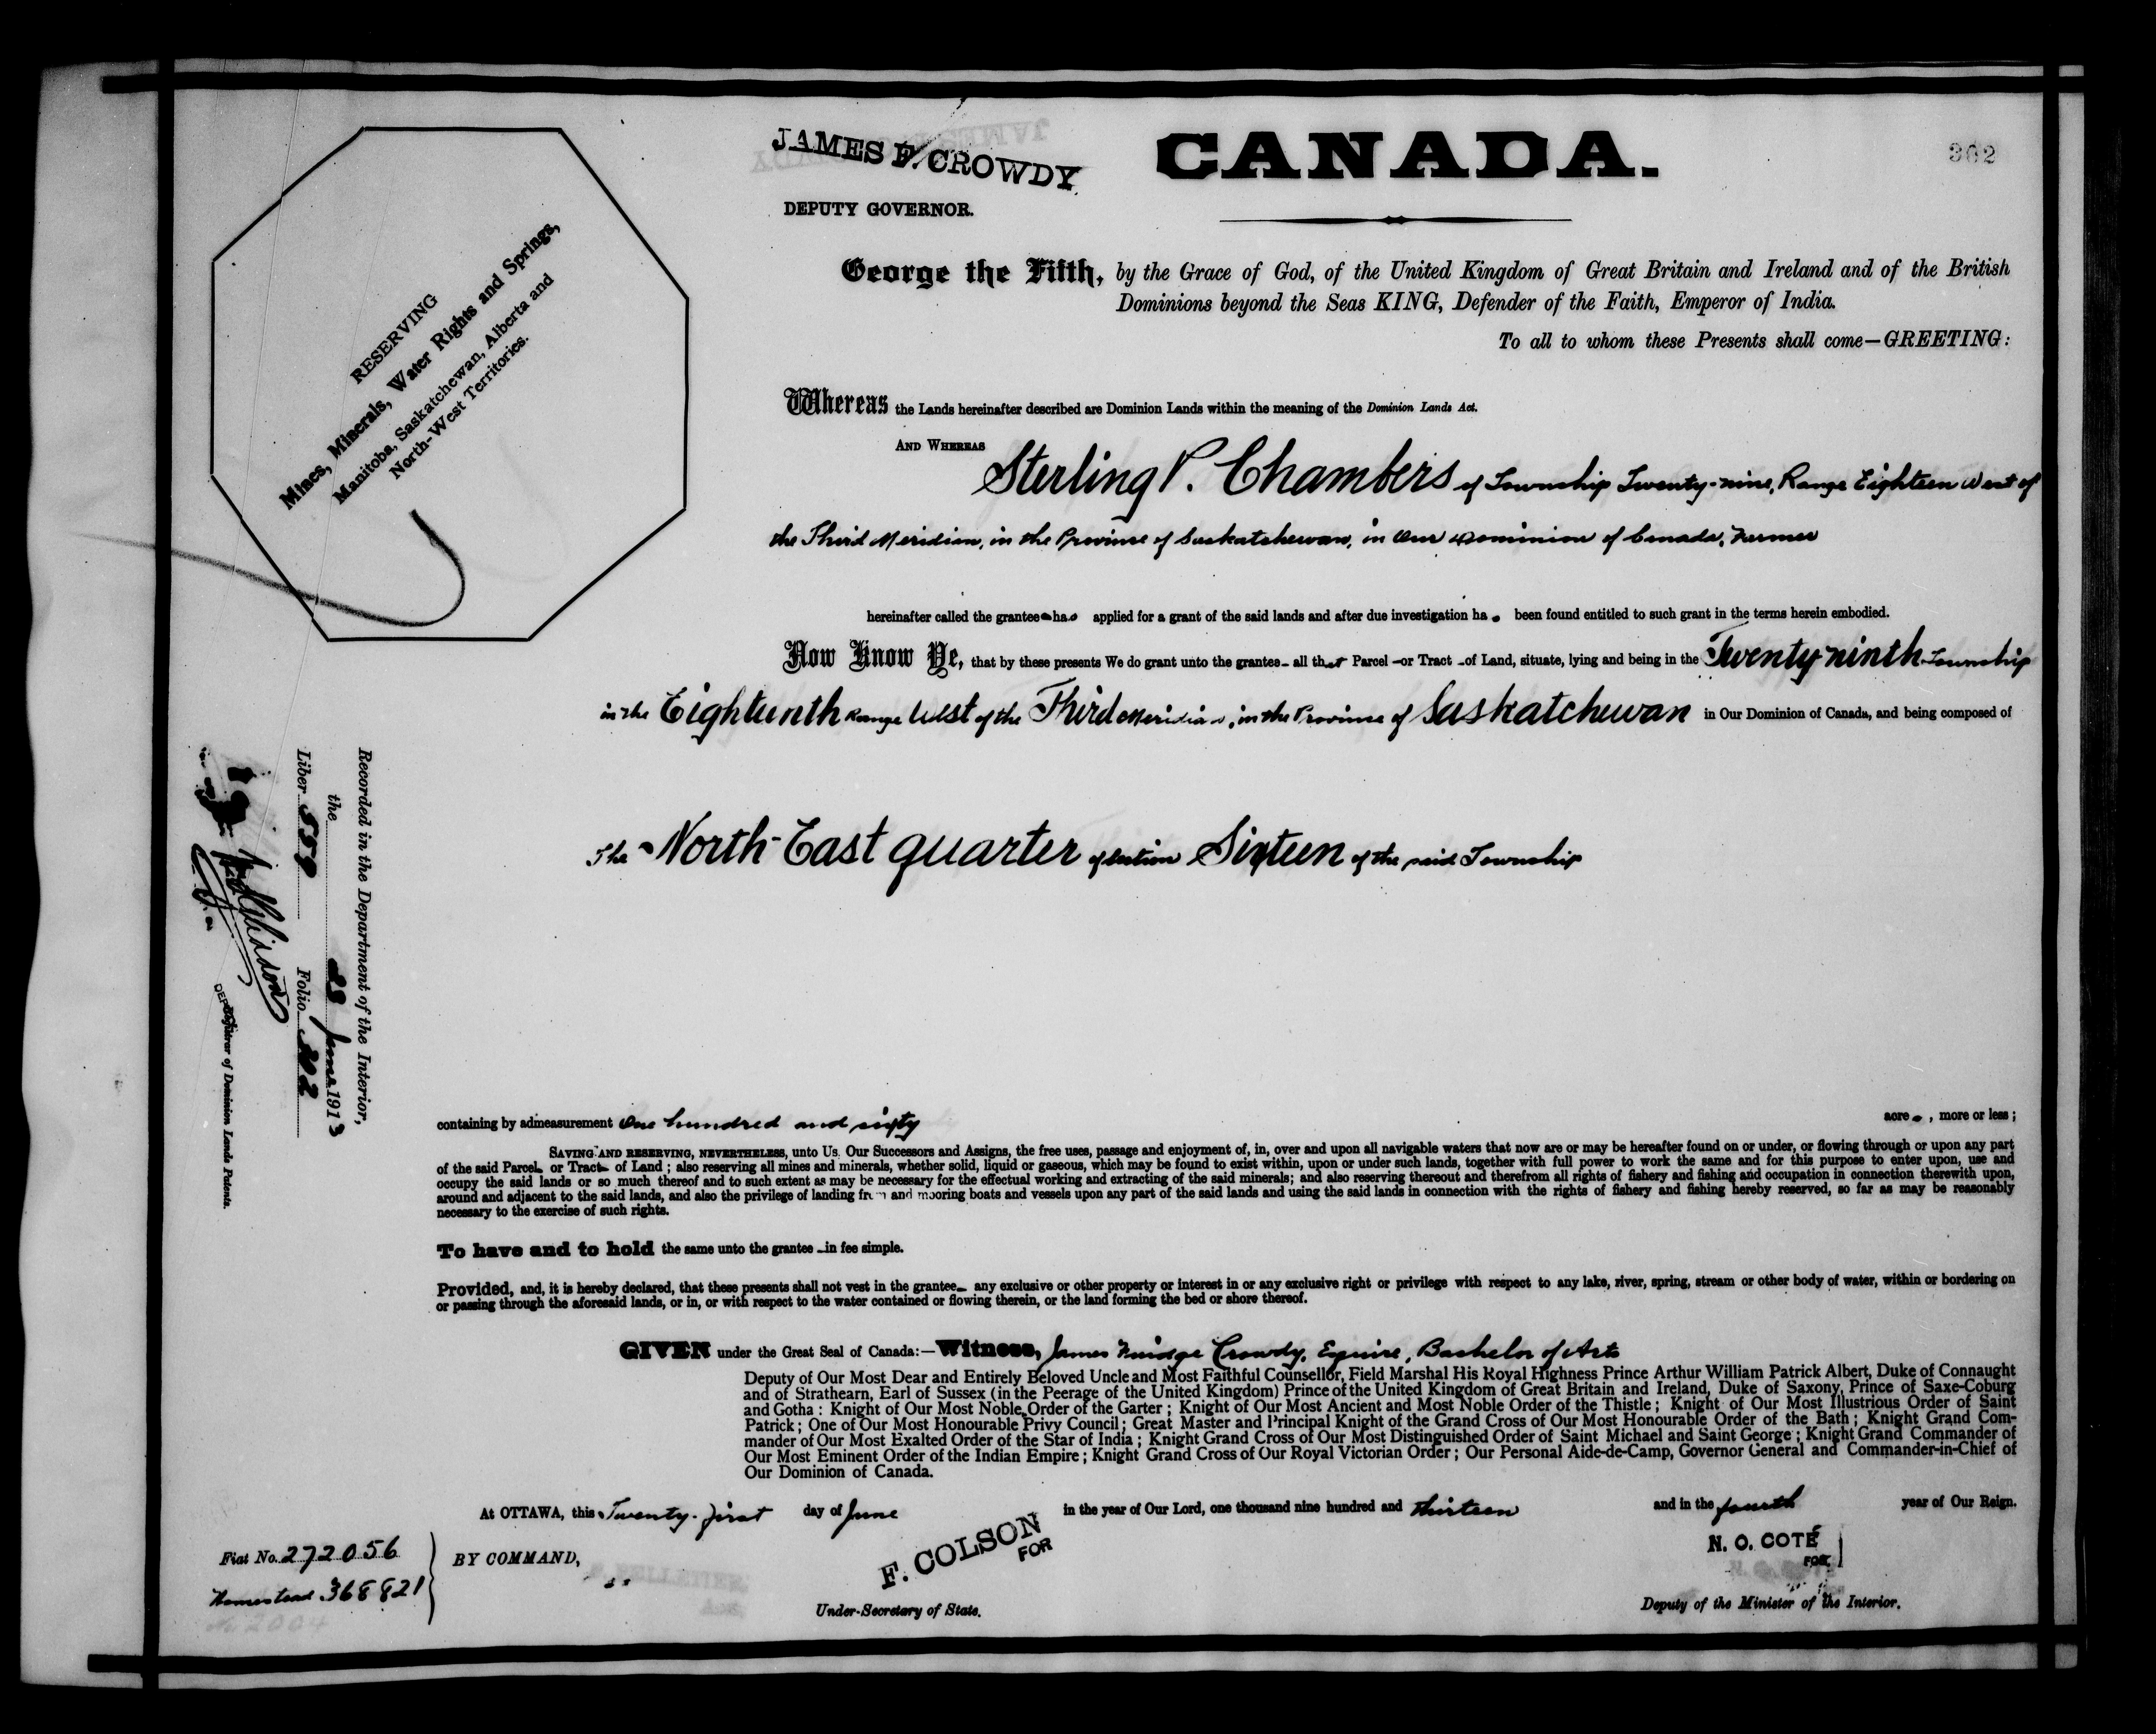 JAMES F. CROWDY
DEPUTY GOVERNOR.
CANADA.
302
RESERVING
Mines, Minerals, Water Rights and Springs,
Manitoba, Saskatchewan, Alberta and
North-West Territories.
George the Fifth, by the Grace of God, of the United Kingdom of Great Britain and Ireland and of the British
Dominions beyond the Seas KING, Defender of the Faith, Emperor of India.
To all to whom these Presents shall come—GREETING:
Whereas the Lands hereinafter described are Dominion Lands within the meaning of the Dominion Lands Act.
AND WHEREAS Sterling P. Chambers of Township Twenty-nine, Range Eighteen West of
the Third Meridian, in the Province of Saskatchewan, in Our Dominion of Canada, Farmer
hereinafter called the grantee has applied for a grant of the said lands and after due investigation has been found entitled to such grant in the terms herein embodied.
Now Know Ye, that by these presents We do grant unto the grantee all that Parcel or Tract of Land, situate, lying and being in the Twenty-ninth Township
in the Eighteenth Range West of the Third Meridian, in the Province of Saskatchewan in Our Dominion of Canada, and being composed of
The North-East quarter of Section Sixteen of the said Township
Recorded in the Department of the Interior,
the 28 June 1913
Liber 559 Folio 302
Registrar of Dominion Lands Patents.
containing by admeasurement One hundred and sixty acres, more or less;
SAVING AND RESERVING, NEVERTHELESS, unto Us, Our Successors and Assigns, the free uses, passage and enjoyment of, in, over and upon all navigable waters that now are or may be hereafter found on or under, or flowing through or upon any part
of the said Parcel or Tract of Land; also reserving all mines and minerals, whether solid, liquid or gaseous, which may be found to exist within, upon or under such lands, together with full power to work the same and for this purpose to enter upon, use and
occupy the said lands or so much thereof and to such extent as may be necessary for the effectual working and extracting of the said minerals; and also reserving thereout and therefrom all rights of fishery and fishing and occupation in connection therewith upon,
around and adjacent to the said lands, and also the privilege of landing from and mooring boats and vessels upon any part of the said lands and using the said lands in connection with the rights of fishery and fishing hereby reserved, so far as may be reasonably
necessary to the exercise of such rights.
To have and to hold the same unto the grantee in fee simple.
Provided, and, it is hereby declared, that these presents shall not vest in the grantee any exclusive or other property or interest in or any exclusive right or privilege with respect to any lake, river, spring, stream or other body of water, within or bordering on
or passing through the aforesaid lands, or in, or with respect to the water contained or flowing therein, or the land forming the bed or shore thereof.
GIVEN under the Great Seal of Canada:—Witness, James Fuidge Crowdy, Esquire, Bachelor of Arts
Deputy of Our Most Dear and Entirely Beloved Uncle and Most Faithful Counsellor, Field Marshal His Royal Highness Prince Arthur William Patrick Albert, Duke of Connaught
and of Strathearn, Earl of Sussex (in the Peerage of the United Kingdom) Prince of the United Kingdom of Great Britain and Ireland, Duke of Saxony, Prince of Saxe-Coburg
and Gotha: Knight of Our Most Noble Order of the Garter; Knight of Our Most Ancient and Most Noble Order of the Thistle; Knight of Our Most Illustrious Order of Saint
Patrick; One of Our Most Honourable Privy Council; Great Master and Principal Knight of the Grand Cross of Our Most Honourable Order of the Bath; Knight Grand Com-
mander of Our Most Exalted Order of the Star of India; Knight Grand Cross of Our Most Distinguished Order of Saint Michael and Saint George; Knight Grand Commander of
Our Most Eminent Order of the Indian Empire; Knight Grand Cross of Our Royal Victorian Order; Our Personal Aide-de-Camp, Governor General and Commander-in-Chief of
Our Dominion of Canada.
At OTTAWA, this Twenty-first day of June in the year of Our Lord, one thousand nine hundred and thirteen and in the fourth year of Our Reign.
Fiat No. 272056
Homestead 368821
BY COMMAND,
F. COLSON
FOR
Under-Secretary of State.
N. O. COTÉ
FOR
Deputy of the Minister of the Interior.